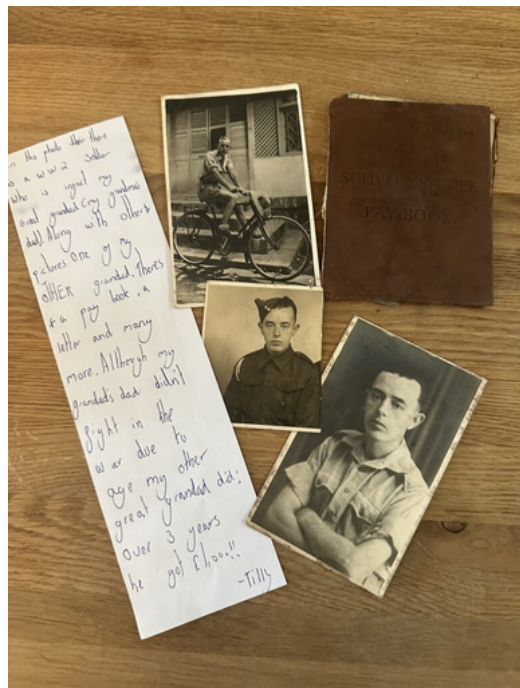 in this photo there
is a ww2 soldier
who is ingact my
great grandad (my grandma's
dad). Along with others
pictures. One of my
OTHER grandad. Theres
a pay book, a
letter and many
more. Although my
grandad's dad didn't
fight in the
war due to
age my other
great grandad did;
over 3 years
he got £1,000!!
-Tilly
SOLDIER'S SERVICE
PAY BOOK